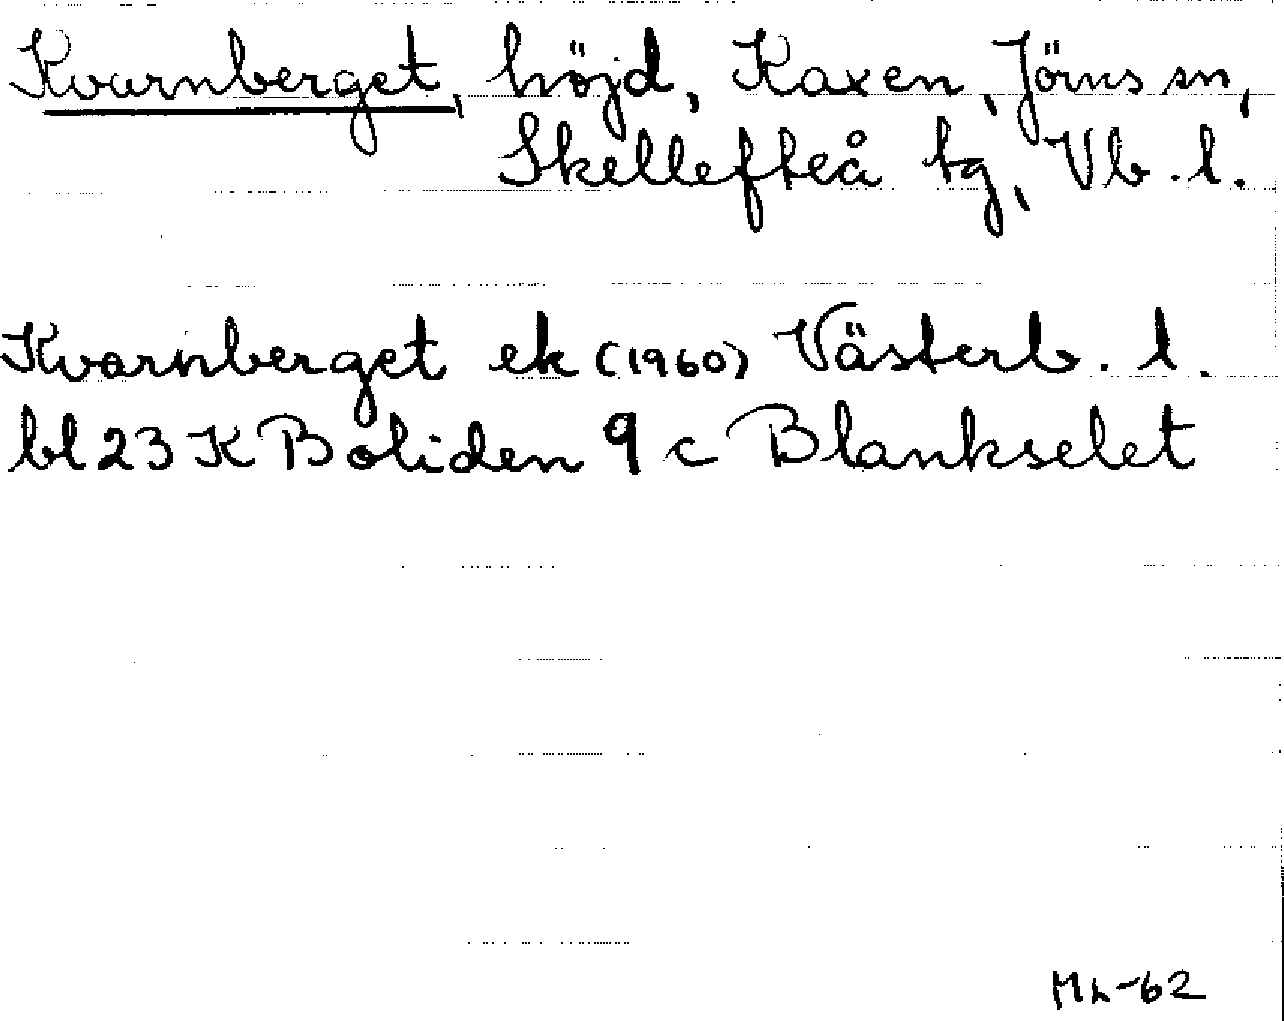 Kvarnberget, höjd, Kaxen, Jörns sn,
Skellefteå tg, Vb. l.
Kvarnberget ek (1960) Västerb. l.
bl 23 K Boliden 9 c Blankselet
ML-62